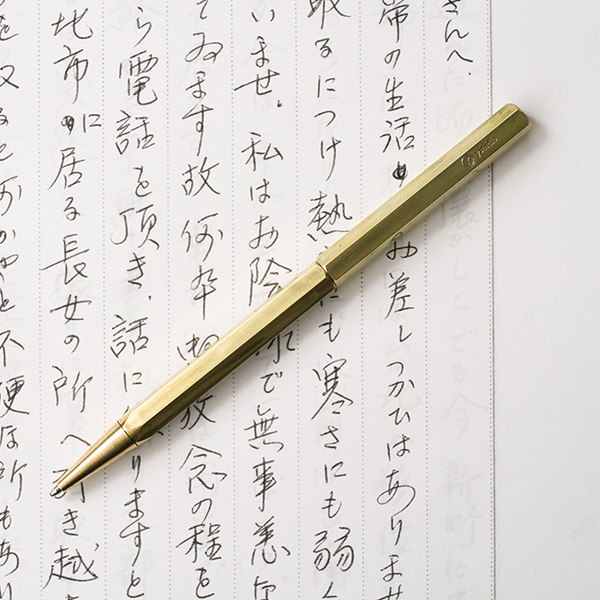 さんへ。
常の生活
み差しつかひはありませ
取るにつけ熱
にも寒さにも弱く
いませ。私はお陰
で無事
てゐます故何卒
放念の程を
ら電話を頂き、話に
りますと
北市に居る長女の所へ
き越
不便な所もあり
ystudio